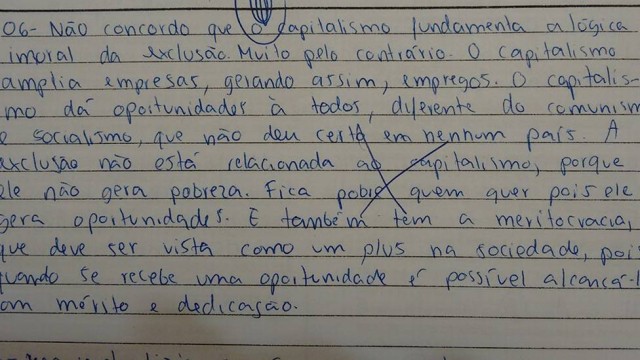 06- Não concordo que o capitalismo fundamenta a lógica
imoral da exclusão. Muito pelo contrário. O capitalismo
amplia empresas, gerando assim, empregos. O capitalis-
mo dá oportunidades à todos, diferente do comunism
e socialismo, que não deu certo em nenhum país. A
exclusão não está relacionada ao capitalismo, porque
ele não gera pobreza. Fica pobre quem quer pois ele
gera oportunidades. E também têm a meritocracia,
que deve ser vista como um plus na sociedade, pois
quando se recebe uma oportunidade é possível alcançá-l
om mérito e dedicação.